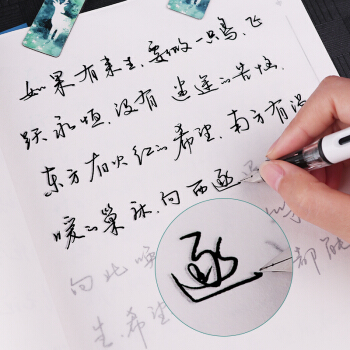 如果有来生,要做一只鸟,飞
跃永恒,没有迷途的苦恼.
东方有火红的希望,南方有温
暖的巢床,向西逐
向北唤
生.希望 都能
逐